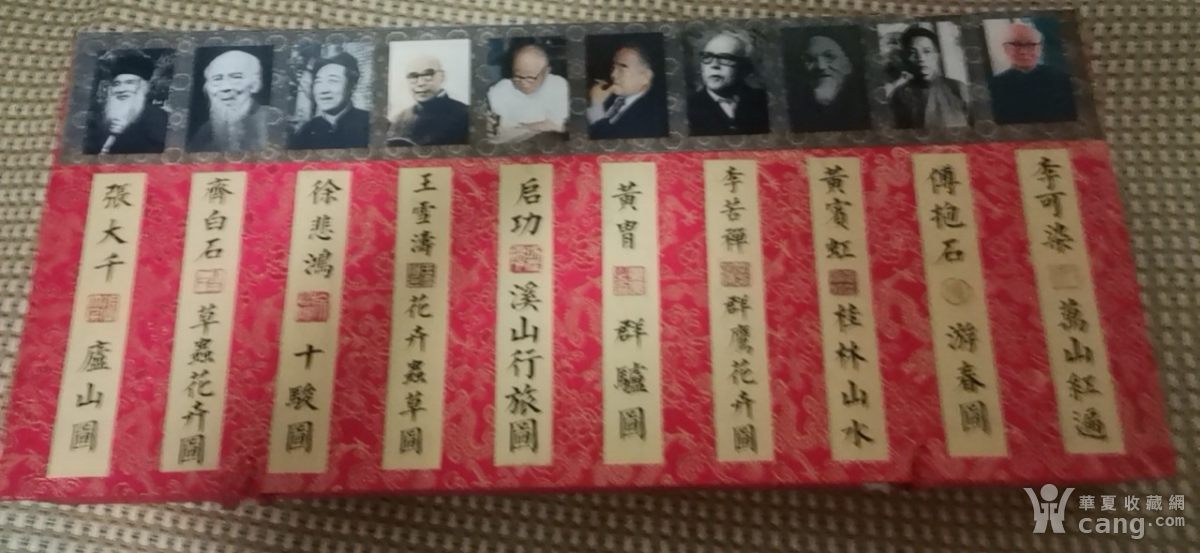 張大千 廬山圖
齊白石 草蟲花卉圖
徐悲鴻 十駿圖
王雪濤 花卉蟲草圖
启功 溪山行旅圖
黃胄 群驢圖
李苦禪 群鷹花卉圖
黃賓虹 桂林山水
傅抱石 游春圖
李可染 萬山紅遍
華夏收藏網
cang.com